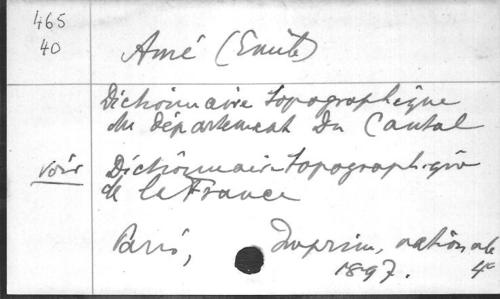 465
40
Amé (Emile)
Dictionnaire topographique
du département du Cantal
voir Dictionnaire topographique
de la France
Paris, Imprim. nationale
1897. 4°